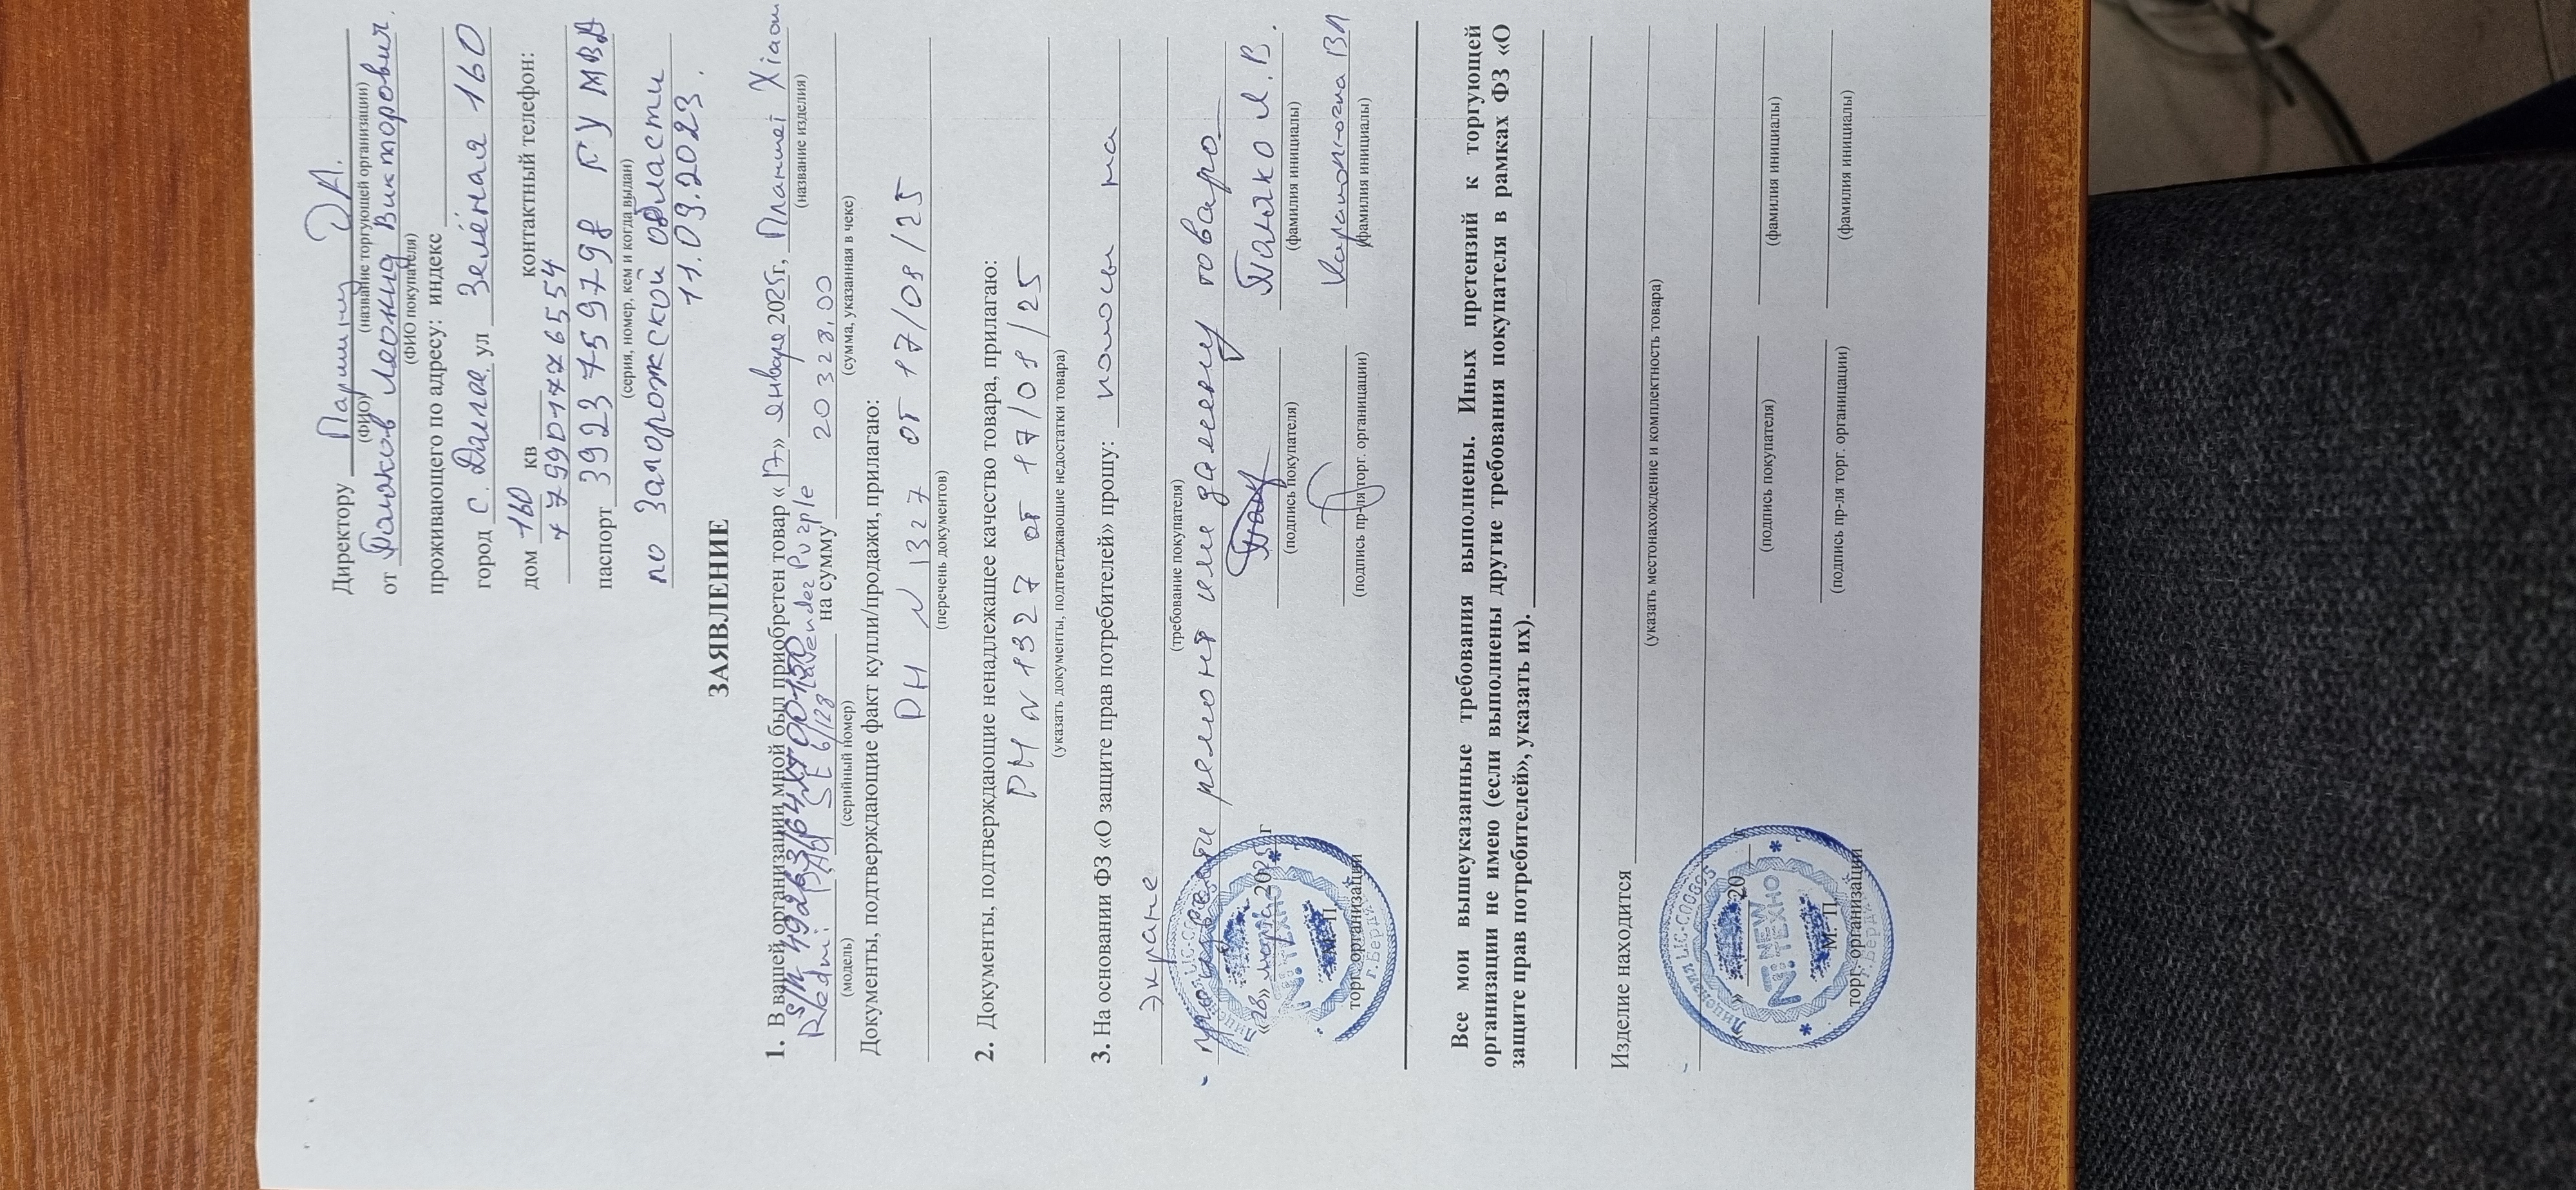 Директору Паршину Д.А.
(ФИО) (название торгующей организации)
от Полаков Леонид Викторович.
(ФИО покупателя)
проживающего по адресу: индекс
город с. Дмлое, ул Зелёная 160
дом 160 кв контактный телефон:
+79901776554
паспорт 3923 759798 ГУ МВД
(серия, номер, кем и когда выдан)
по Запорожской области
11.09.2023.
ЗАЯВЛЕНИЕ
1. В вашей организации мной был приобретен товар «17» января 2025г, Планшет Xiaomi
(название изделия)
S/N 49263/64
Redmi PAd SE 6/128 Lavender Purple на сумму 20 328,00
(модель) (серийный номер) (сумма, указанная в чеке)
Документы, подтверждающие факт купли/продажи, прилагаю:
РН N 1327 от 17/01/25
(перечень документов)
2. Документы, подтверждающие ненадлежащее качество товара, прилагаю:
РН N 1327 от 17/01/25
(указать документы, подтверждающие недостатки товара)
3. На основании ФЗ «О защите прав потребителей» прошу: полосы на
экране
(требование покупателя)
- ремонт или замену товара
«28» марта 2025 г Полаков Л.В.
(подпись покупателя) (фамилия инициалы)
М. П.
торг. организации (подпись пр-ля торг. органицации) (фамилия инициалы)
Все мои вышеуказанные требования выполнены. Иных претензий к торгующей
организации не имею (если выполнены другие требования покупателя в рамках ФЗ «О
защите прав потребителей», указать их).
Изделие находится
(указать местонахождение и комплектность товара)
» 20
(подпись покупателя) (фамилия инициалы)
NEW ТЕХНО
М. П.
торг. организации (подпись пр-ля торг. органицации) (фамилия инициалы)
г.Бердя